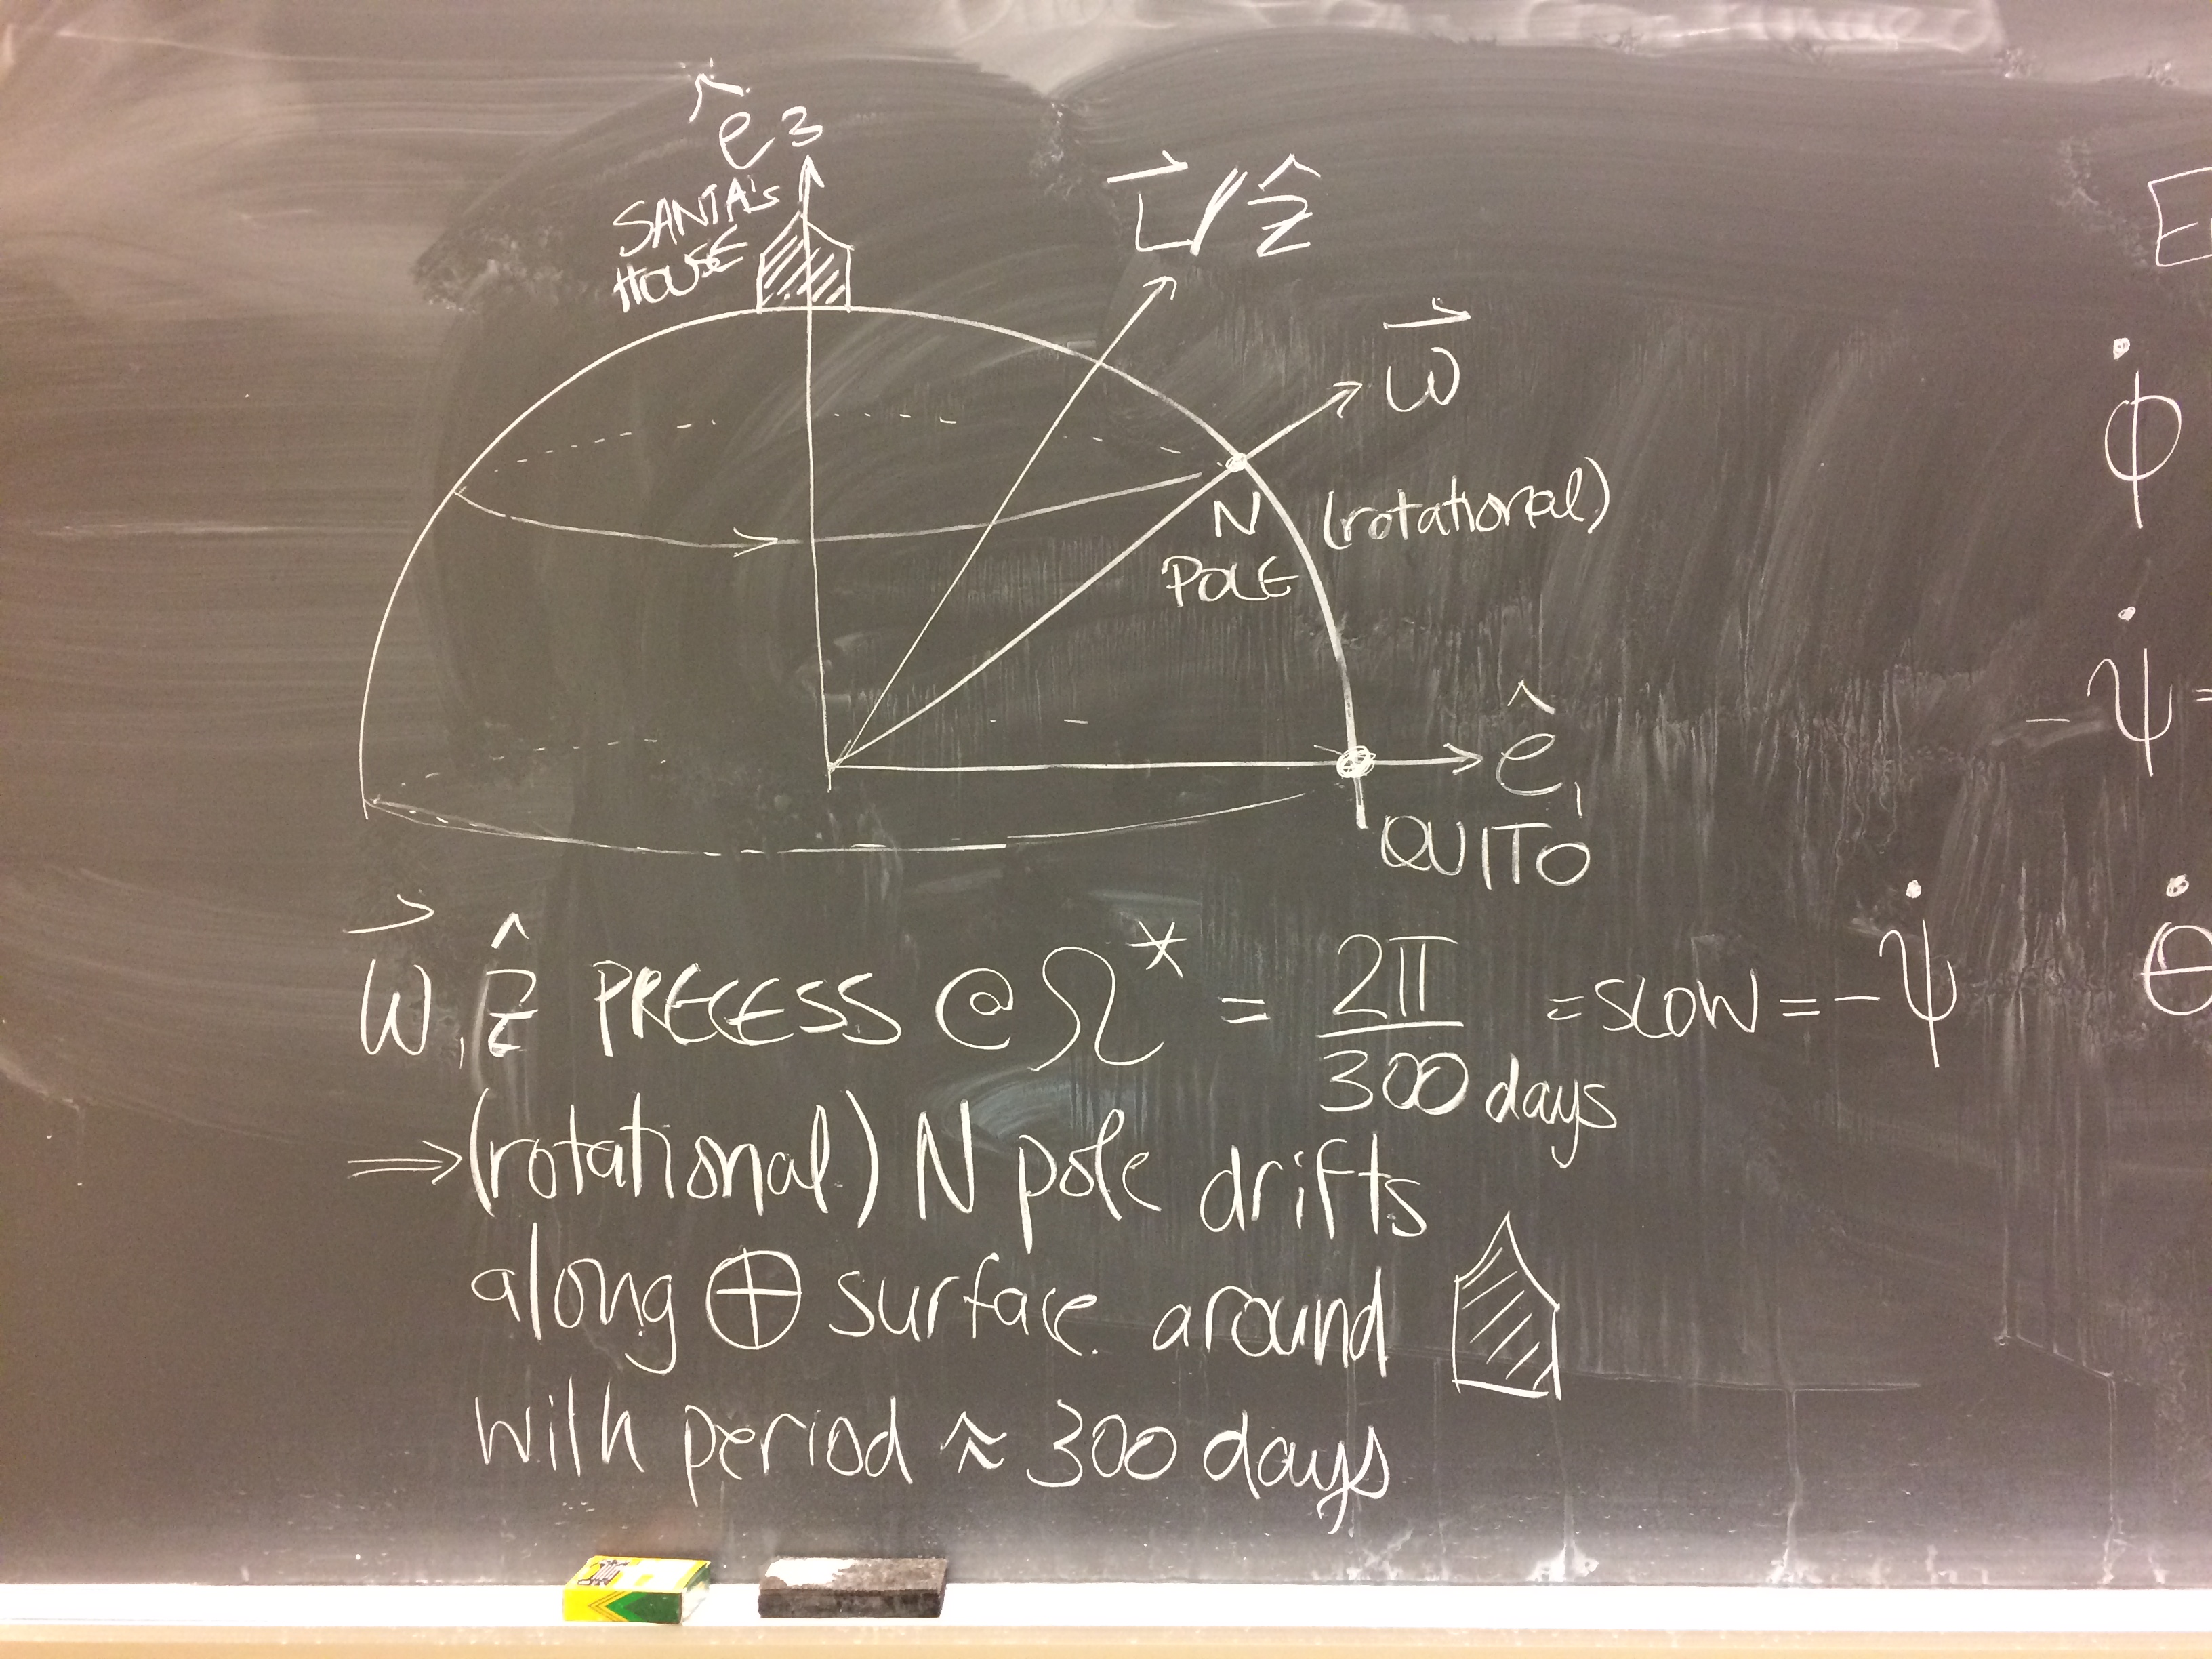 ê3
SANTA'S
HOUSE
L⃗ // ẑ
ω⃗
N (rotational)
POLE
ê1
QUITO
ω⃗, ẑ PRECESS @ Ω* = 2π / 300 days = SLOW = -ψ̇
⇒ (rotational) N pole drifts
along ⊕ surface around
with period ≈ 300 days
φ̇
-ψ̇ =
θ̇